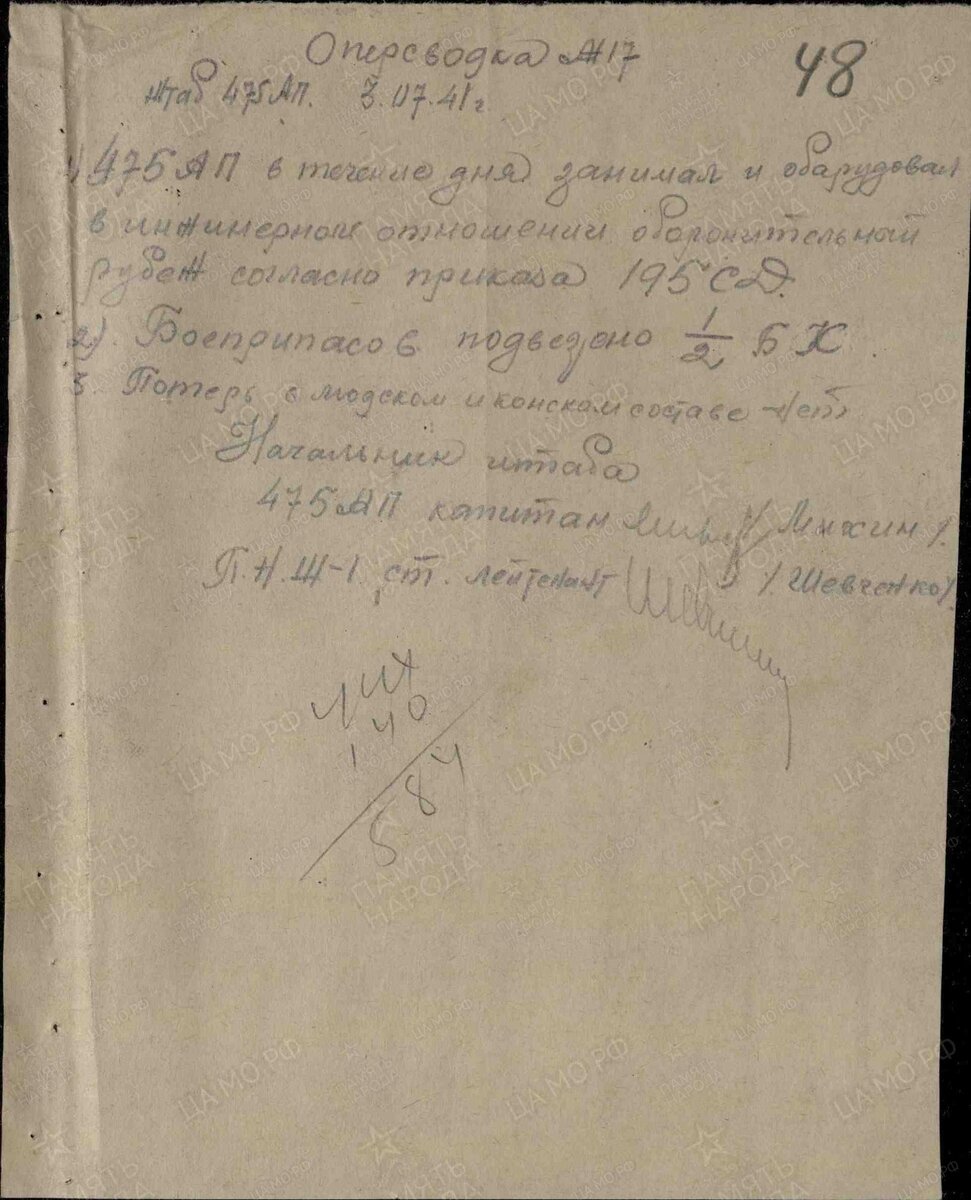 48
Оперсводка №17
штаб 475 АП. 3.07.41 г.
1) 475 АП в течение дня занимал и оборудовал
в инжинерном отношении оборонительный
рубеж согласно приказа 195 СД.
2) Боеприпасов подвезено 1/2 БК.
3. Потерь в людском и конском составе нет
Начальник штаба
475 АП капитан /Михин/.
П.Н.Ш-1 ст. лейтенант /Шевченко/.
140
584